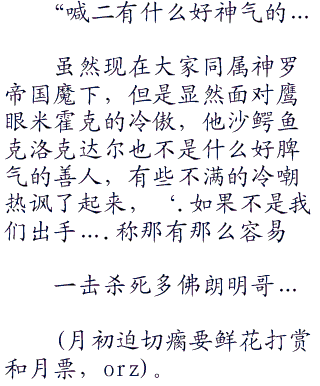 “喊二有什么好神气的...
虽然现在大家同属神罗
帝国魔下，但是显然面对鹰
眼米霍克的冷傲，他沙鳄鱼
克洛克达尔也不是什么好脾
气的善人，有些不满的冷嘲
热讽了起来，‘.如果不是我
们出手....称那有那么容易
一击杀死多佛朗明哥...
(月初迫切瘸要鲜花打赏
和月票，orz)。